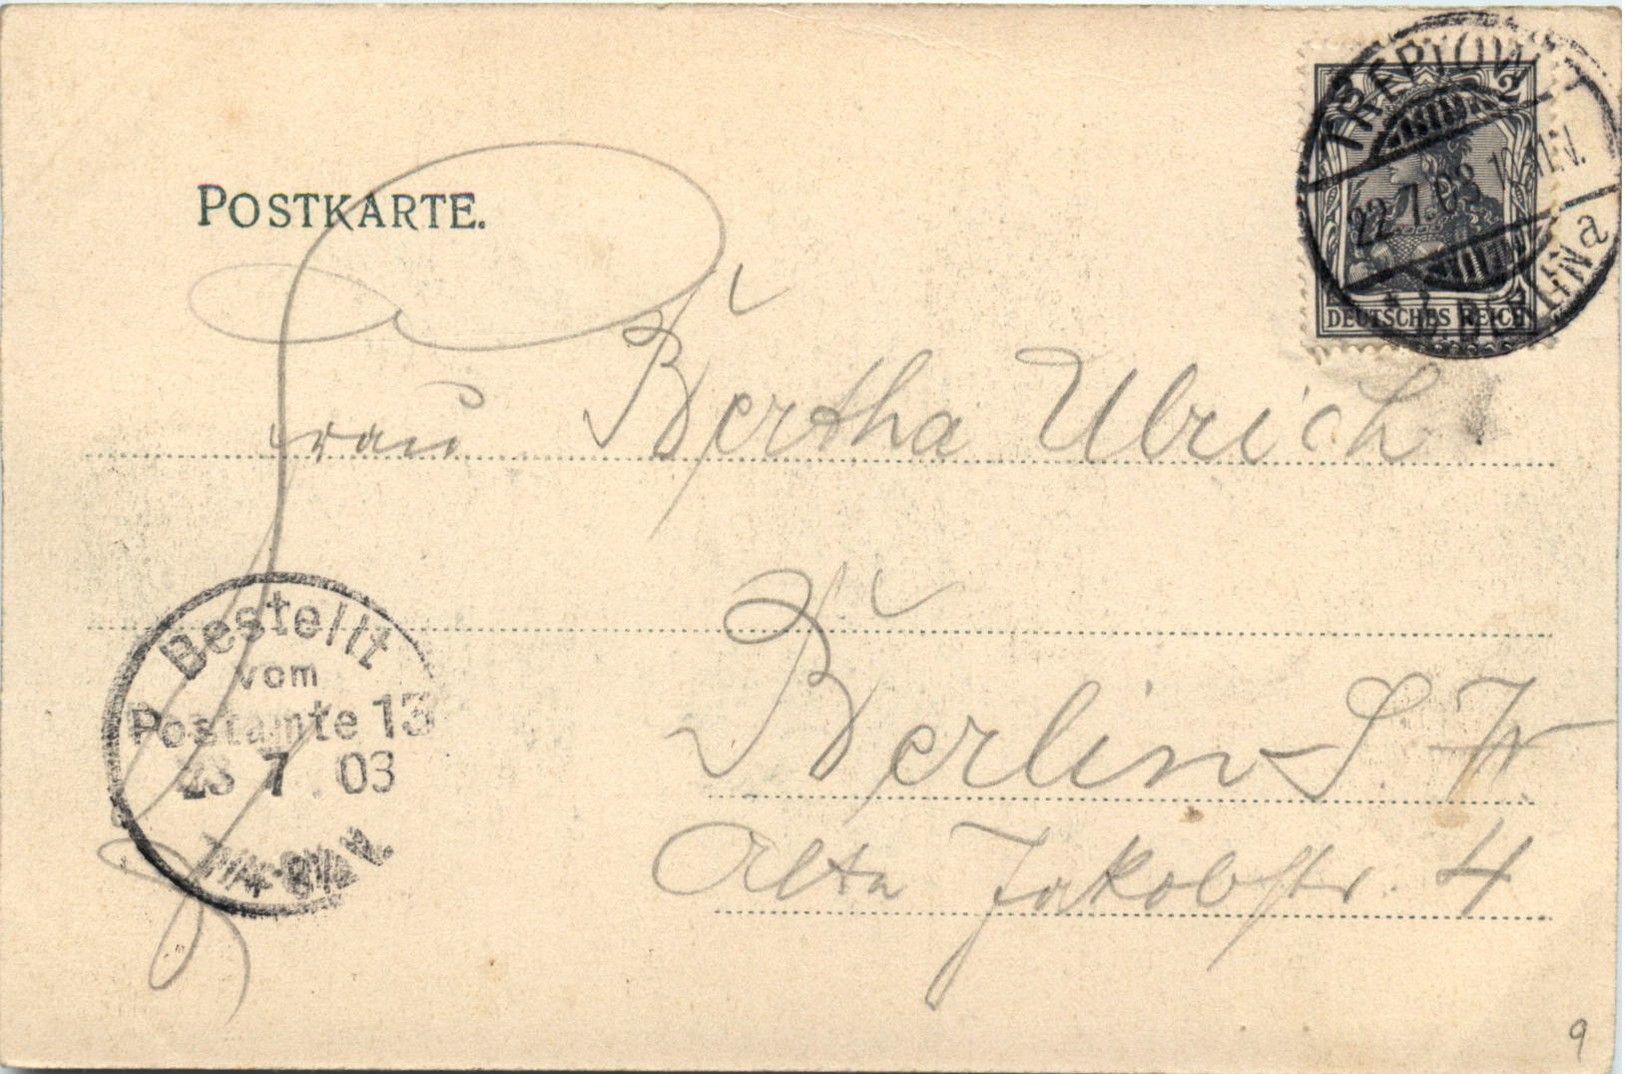 POSTKARTE.
2
DEUTSCHES REICH
TREPTOW
22.7.03 10-11 N.
BERLIN a
Frau Bertha Ulrich
Bestellt
vom
Postamte 13
23 7. 03
V.
Berlin S W
Alte Jakobstr. 4
9